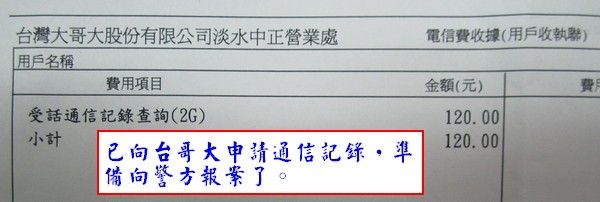 台灣大哥大股份有限公司淡水中正營業處 電信費收據(用戶收執聯)
用戶名稱
費用項目 金額(元) 費
受話通信記錄查詢(2G) 120.00
小計 120.00
已向台哥大申請通信記錄，準
備向警方報案了。